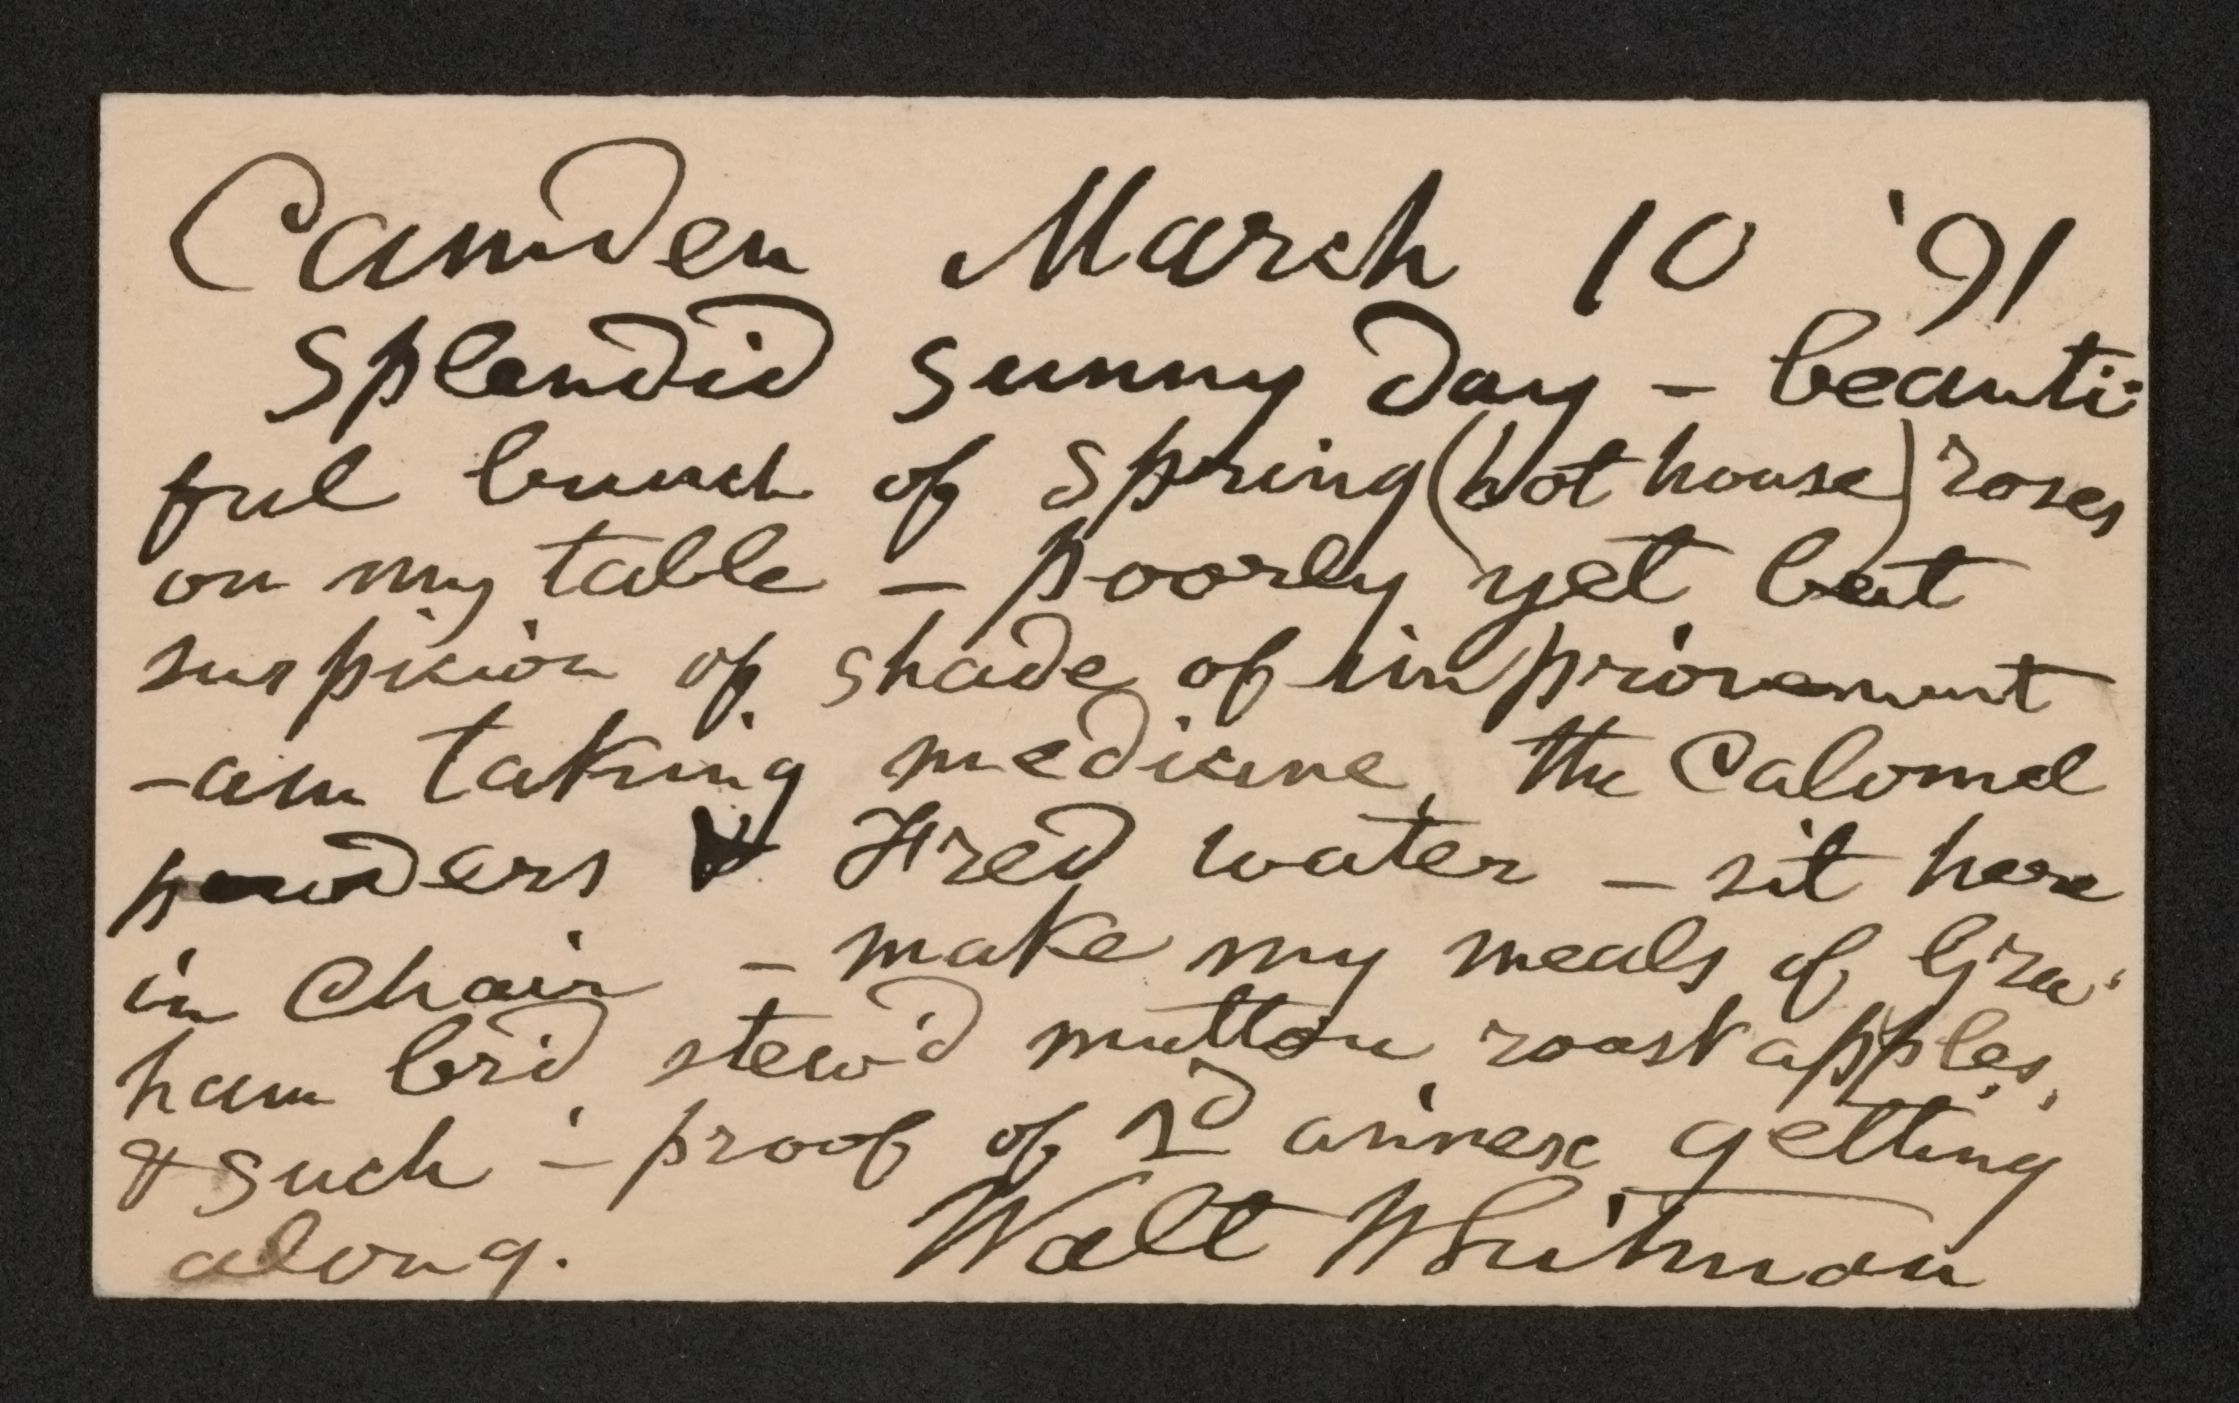 Camden March 10 '91
Splendid sunny day – beauti-
ful bunch of spring (hot house) roses
on my table – poorly yet but
suspicion of shade of improvement
– am taking medicine, the Calomel
powders & Fred water – sit here
in chair – make my meals of Gra-
ham br'd stew'd mutton roast apples,
& such – proof of 2d annex getting
along. Walt Whitman